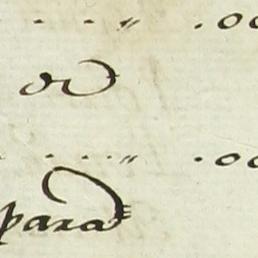 . . . „ .00
de
. . . . „ .00
para